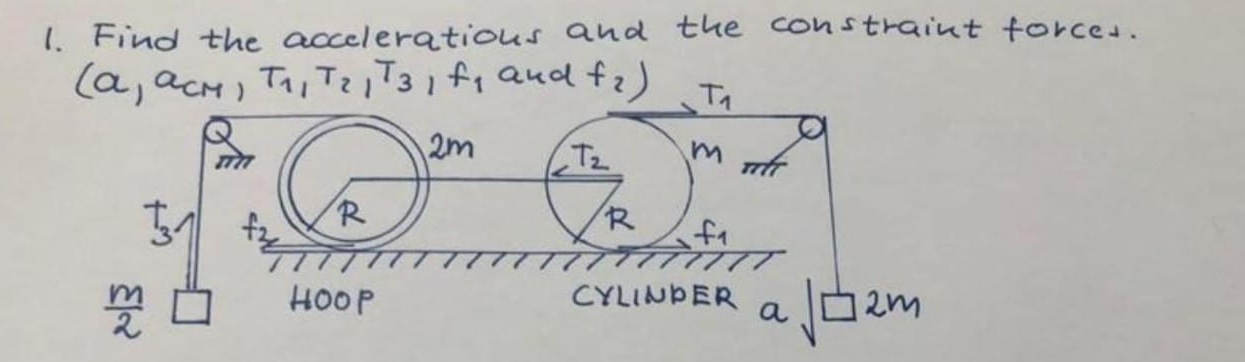 1. Find the accelerations and the constraint forces.
(a, aCM, T1, T2, T3, f1 and f2)
T1
2m
T2
m
T3
f2
R
R
f1
m/2
HOOP
CYLINDER
a
2m